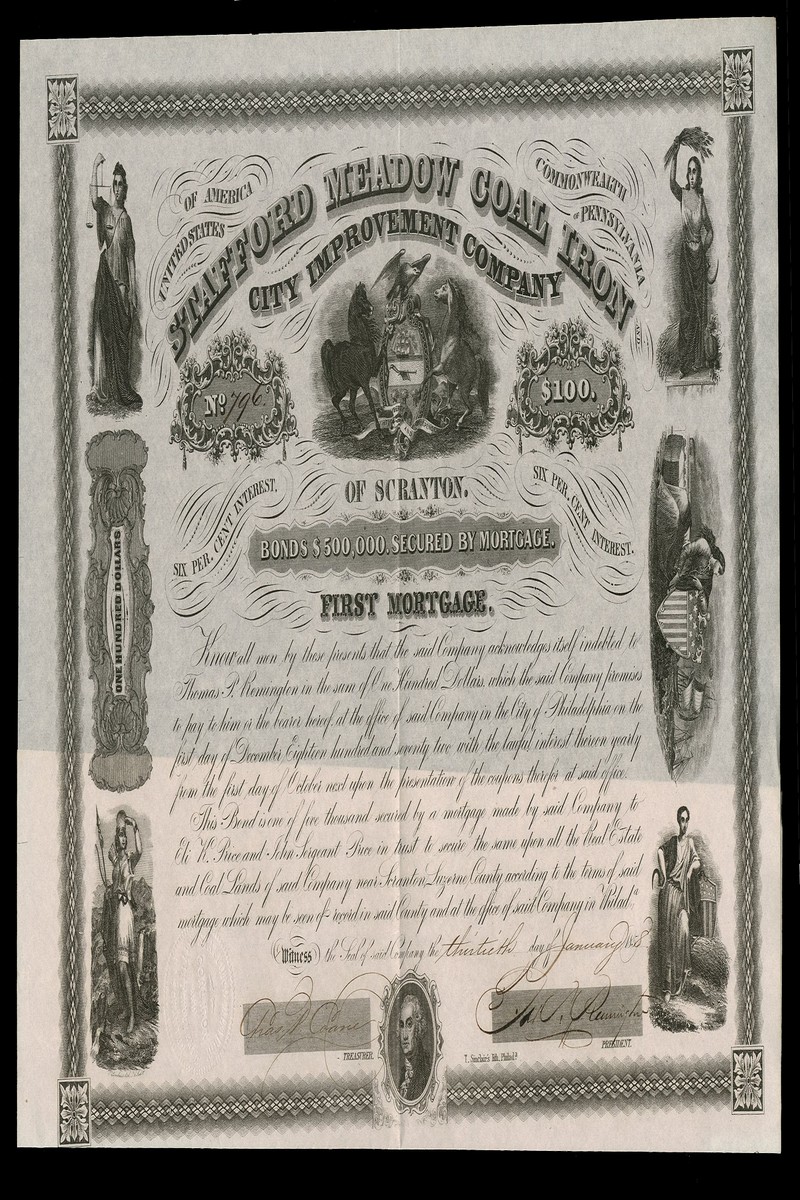 UNITED STATES OF AMERICA
COMMONWEALTH OF PENNSYLVANIA
STAFFORD MEADOW COAL IRON AND
CITY IMPROVEMENT COMPANY
No. 796
$100.
OF SCRANTON.
SIX PER. CENT INTEREST.
SIX PER. CENT INTEREST.
BONDS $500,000. SECURED BY MORTGAGE.
FIRST MORTGAGE.
ONE HUNDRED DOLLARS
Know all men by these presents that the said Company acknowledges itself indebted to
Thomas P. Remington in the sum of One Hundred Dollars, which the said Company promises
to pay to him or the bearer hereof, at the office of said Company in the City of Philadelphia on the
first day of December Eighteen hundred and seventy two with the lawful interest thereon yearly
from the first day of October next upon the presentation of the coupons therefor at said office.
This Bond is one of five thousand secured by a mortgage made by said Company to
Eli K. Price and John Sergeant Price in trust to secure the same upon all the Real Estate
and Coal Lands of said Company near Scranton, Luzerne County according to the terms of said
mortgage which may be seen of record in said County and at the office of said Company in Philada.
Witness the Seal of said Company the thirtieth day of January 1858
TREASURER.
PRESIDENT.
T. Sinclair's lith. Philada.